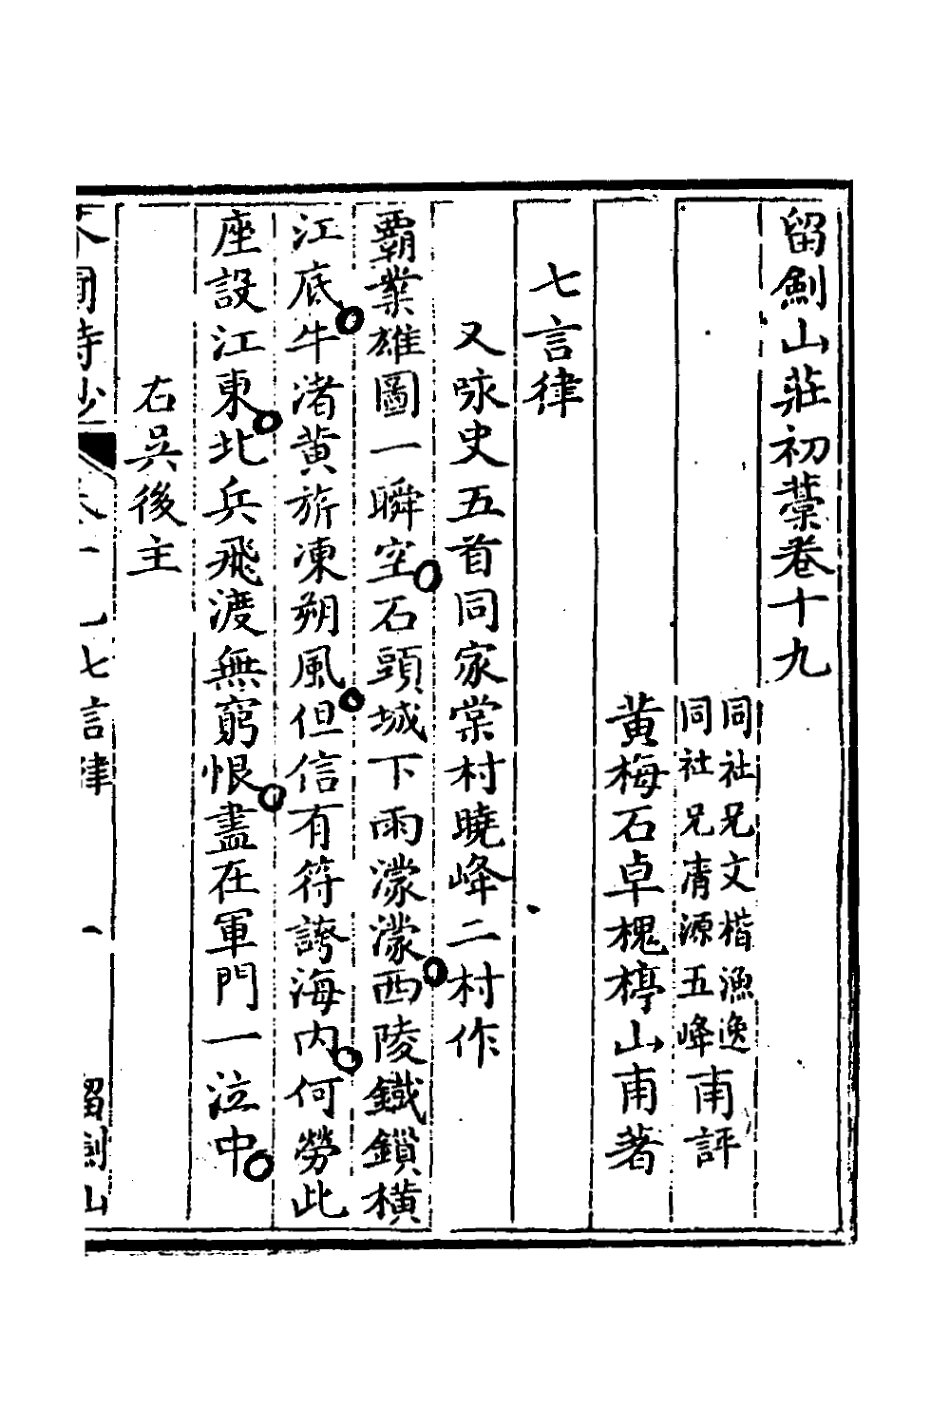 留劍山莊初藁卷十九
同社兄文楷漁逸
同社兄清源五峰甫評
黄梅石卓槐㮠山甫著
七言律
又咏史五首同家棠村曉峰二村作
覇業雄圖一瞬空石頭城下雨濛濛西陵鐵鎖橫
江底牛渚黄旂凍朔風但信有符誇海内何勞此
座設江東北兵飛渡無窮恨盡在軍門一泣中
右吳後主
七言律
一
留劍山